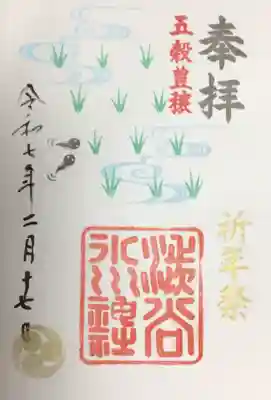 奉拝
五穀豊穣
祈年祭
渋谷
氷川神社
令和七年二月十七日